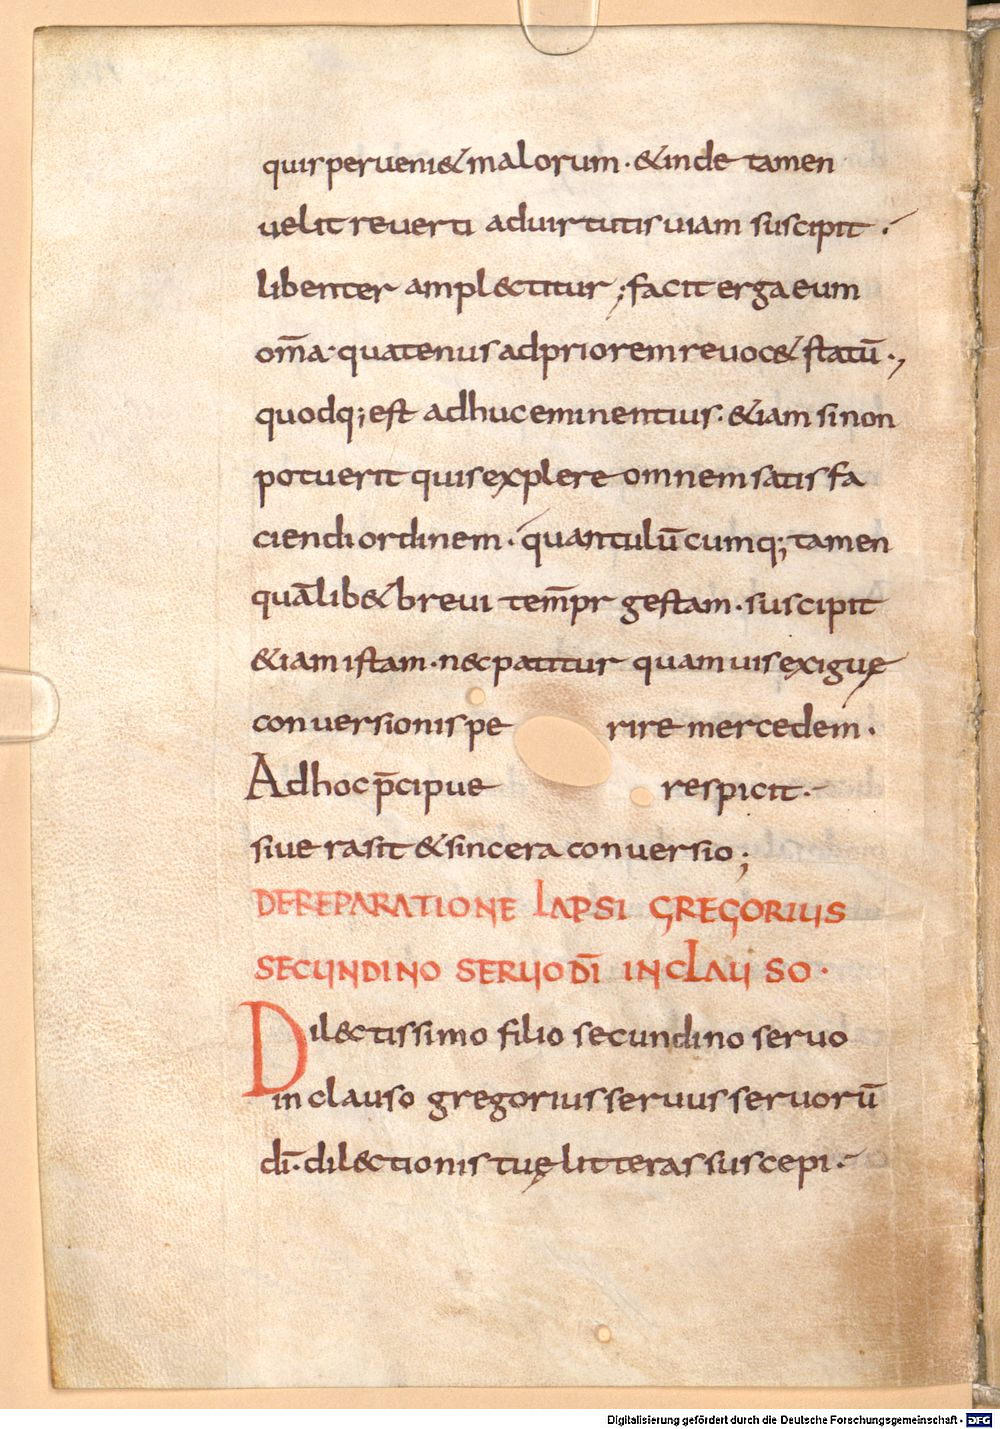 quis peruenit & malorum · & inde tamen
uelit reuerti ad uirtutis uiam suscipit ·
libenter amplectitur ; facit erga eum
om̄a · quatenus ad priorem reuoc& statū ·,
quodq; est adhuc eminentius · &iam si non
potuerit quis explere omnem satis fa
ciendi ordinem · quantulūcumq; tamen
quālib& breui tem̄pr gestam · suscipit
&iam istam · nec patitur quamuis exiguę
conuersionis perire mercedem ·
Ad hoc p̄cipue respicit ·
siue rasit & sincera conuersio ;
DE REPARATIONE LAPSI GREGORIUS
SECUNDINO SERUO DĪ INCLAUSO ·
Dilectissimo filio secundino seruo
inclauso gregorius seruus seruorū
dī · dilectionis tuę litteras suscepi ·
Digitalisierung gefördert durch die Deutsche Forschungsgemeinschaft - DFG